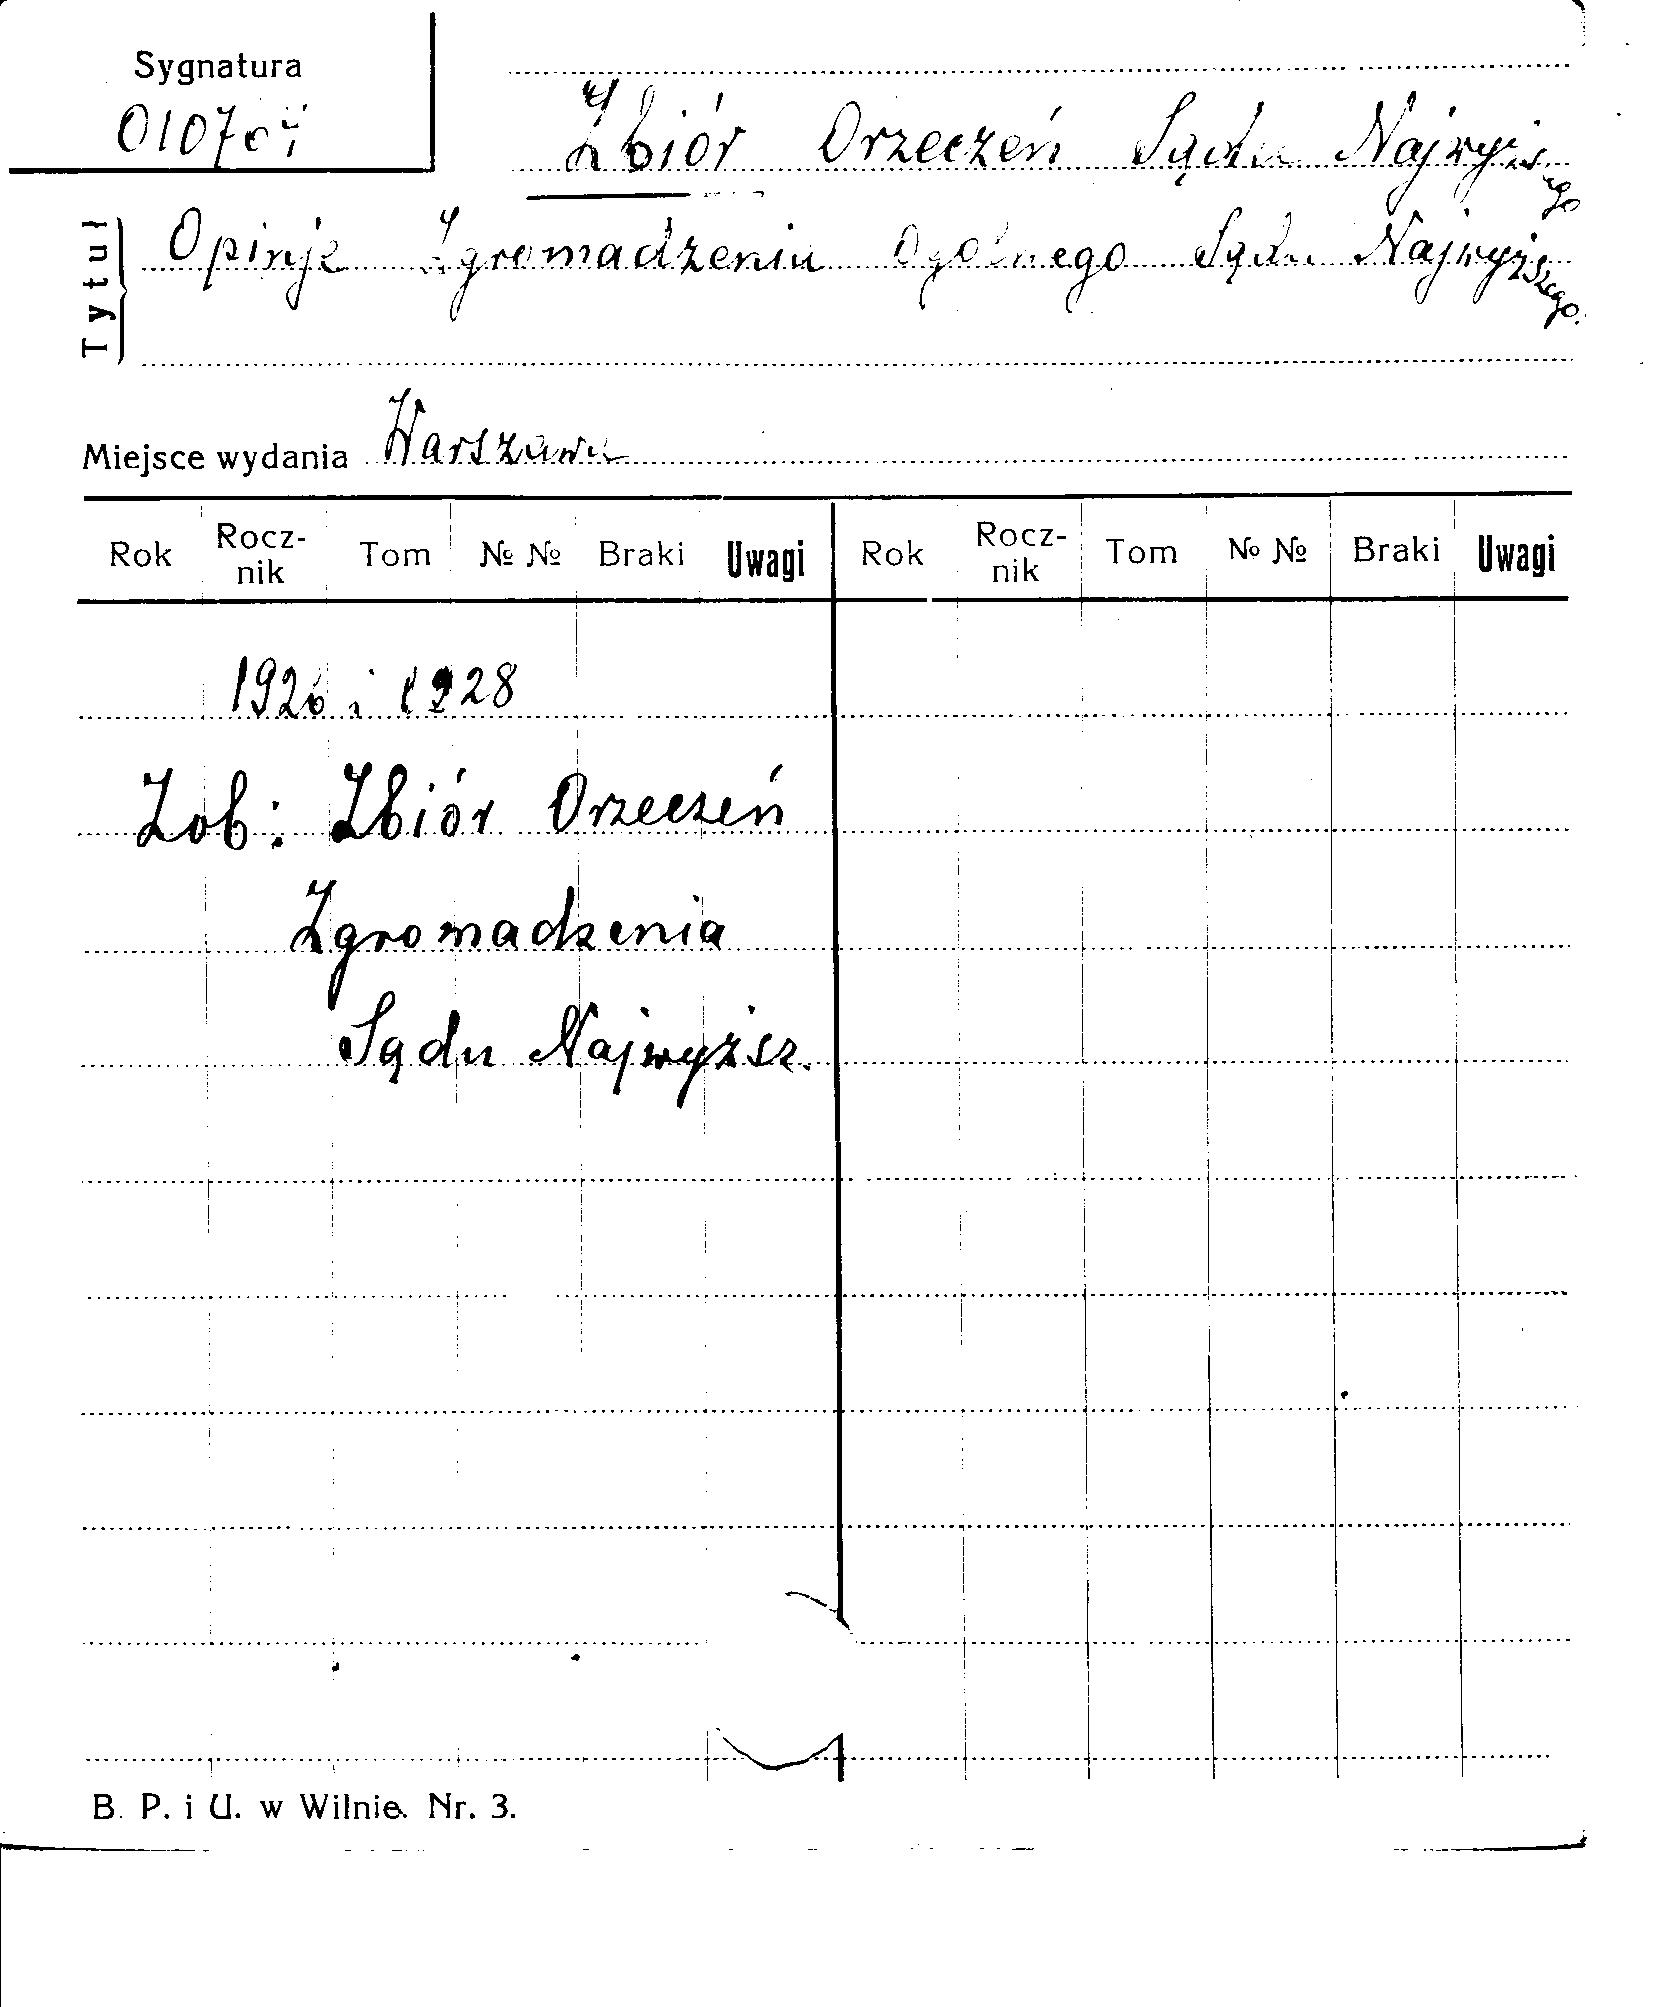 Sygnatura
Zbiór Orzeczeń Sądu Najwyższego
Tytuł
Opinje Zgromadzenia Ogólnego Sądu Najwyższego.
Miejsce wydania Warszawa
Rok Rocz-nik Tom № № Braki Uwagi Rok Rocz-nik Tom № № Braki Uwagi
1926 i 1928
Zob: Zbiór Orzeczeń
Zgromadzenia
Sądu Najwyższ.
B. P. i U. w Wilnie. Nr. 3.